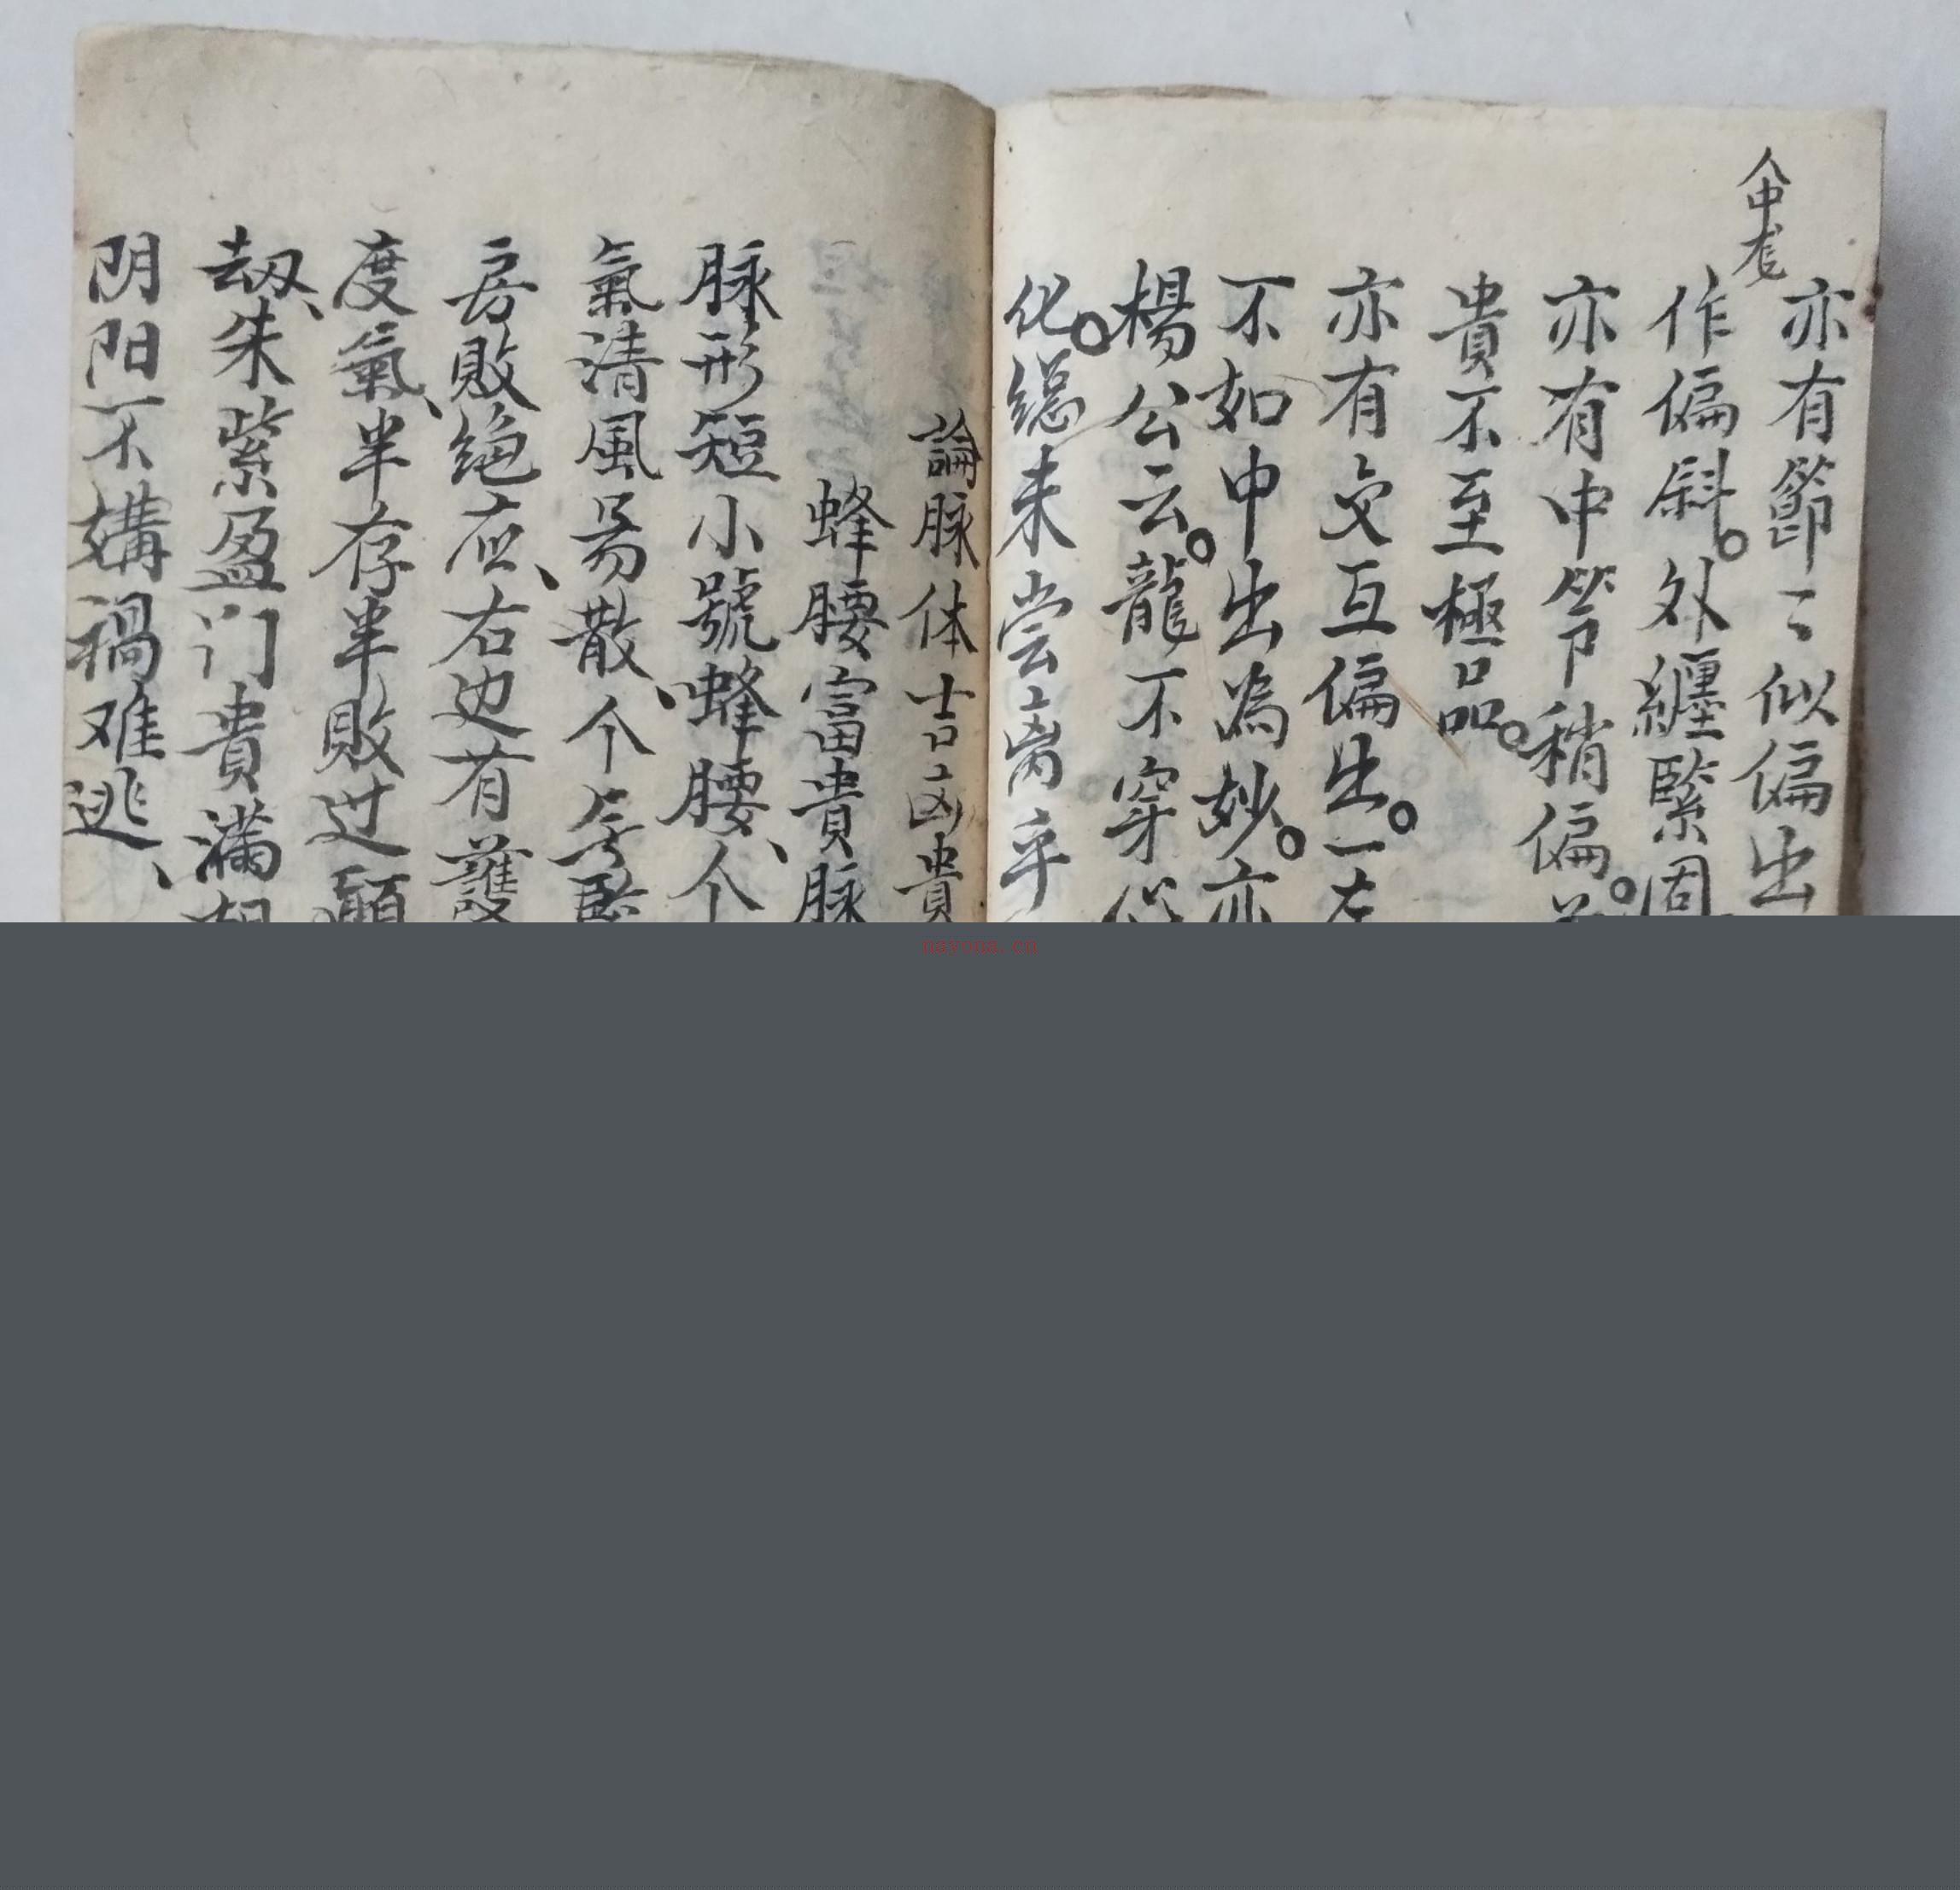 亦有節〻似偏出
作偏斜。外纏緊固
亦有中節稍偏。
貴不至極品。
亦有交互偏生。一左
不如中出為妙。亦
楊公云。龍不穿
化。總未嘗离乎
論脉体吉凶貴
蜂腰富貴脉
脉形短小號蜂腰、个
氣清風昜散、个
房敗絶应、右边有護
度氣、半存半敗过顛
刼、朱紫盈门貴滿朝
阴阳不媾禍难逃、